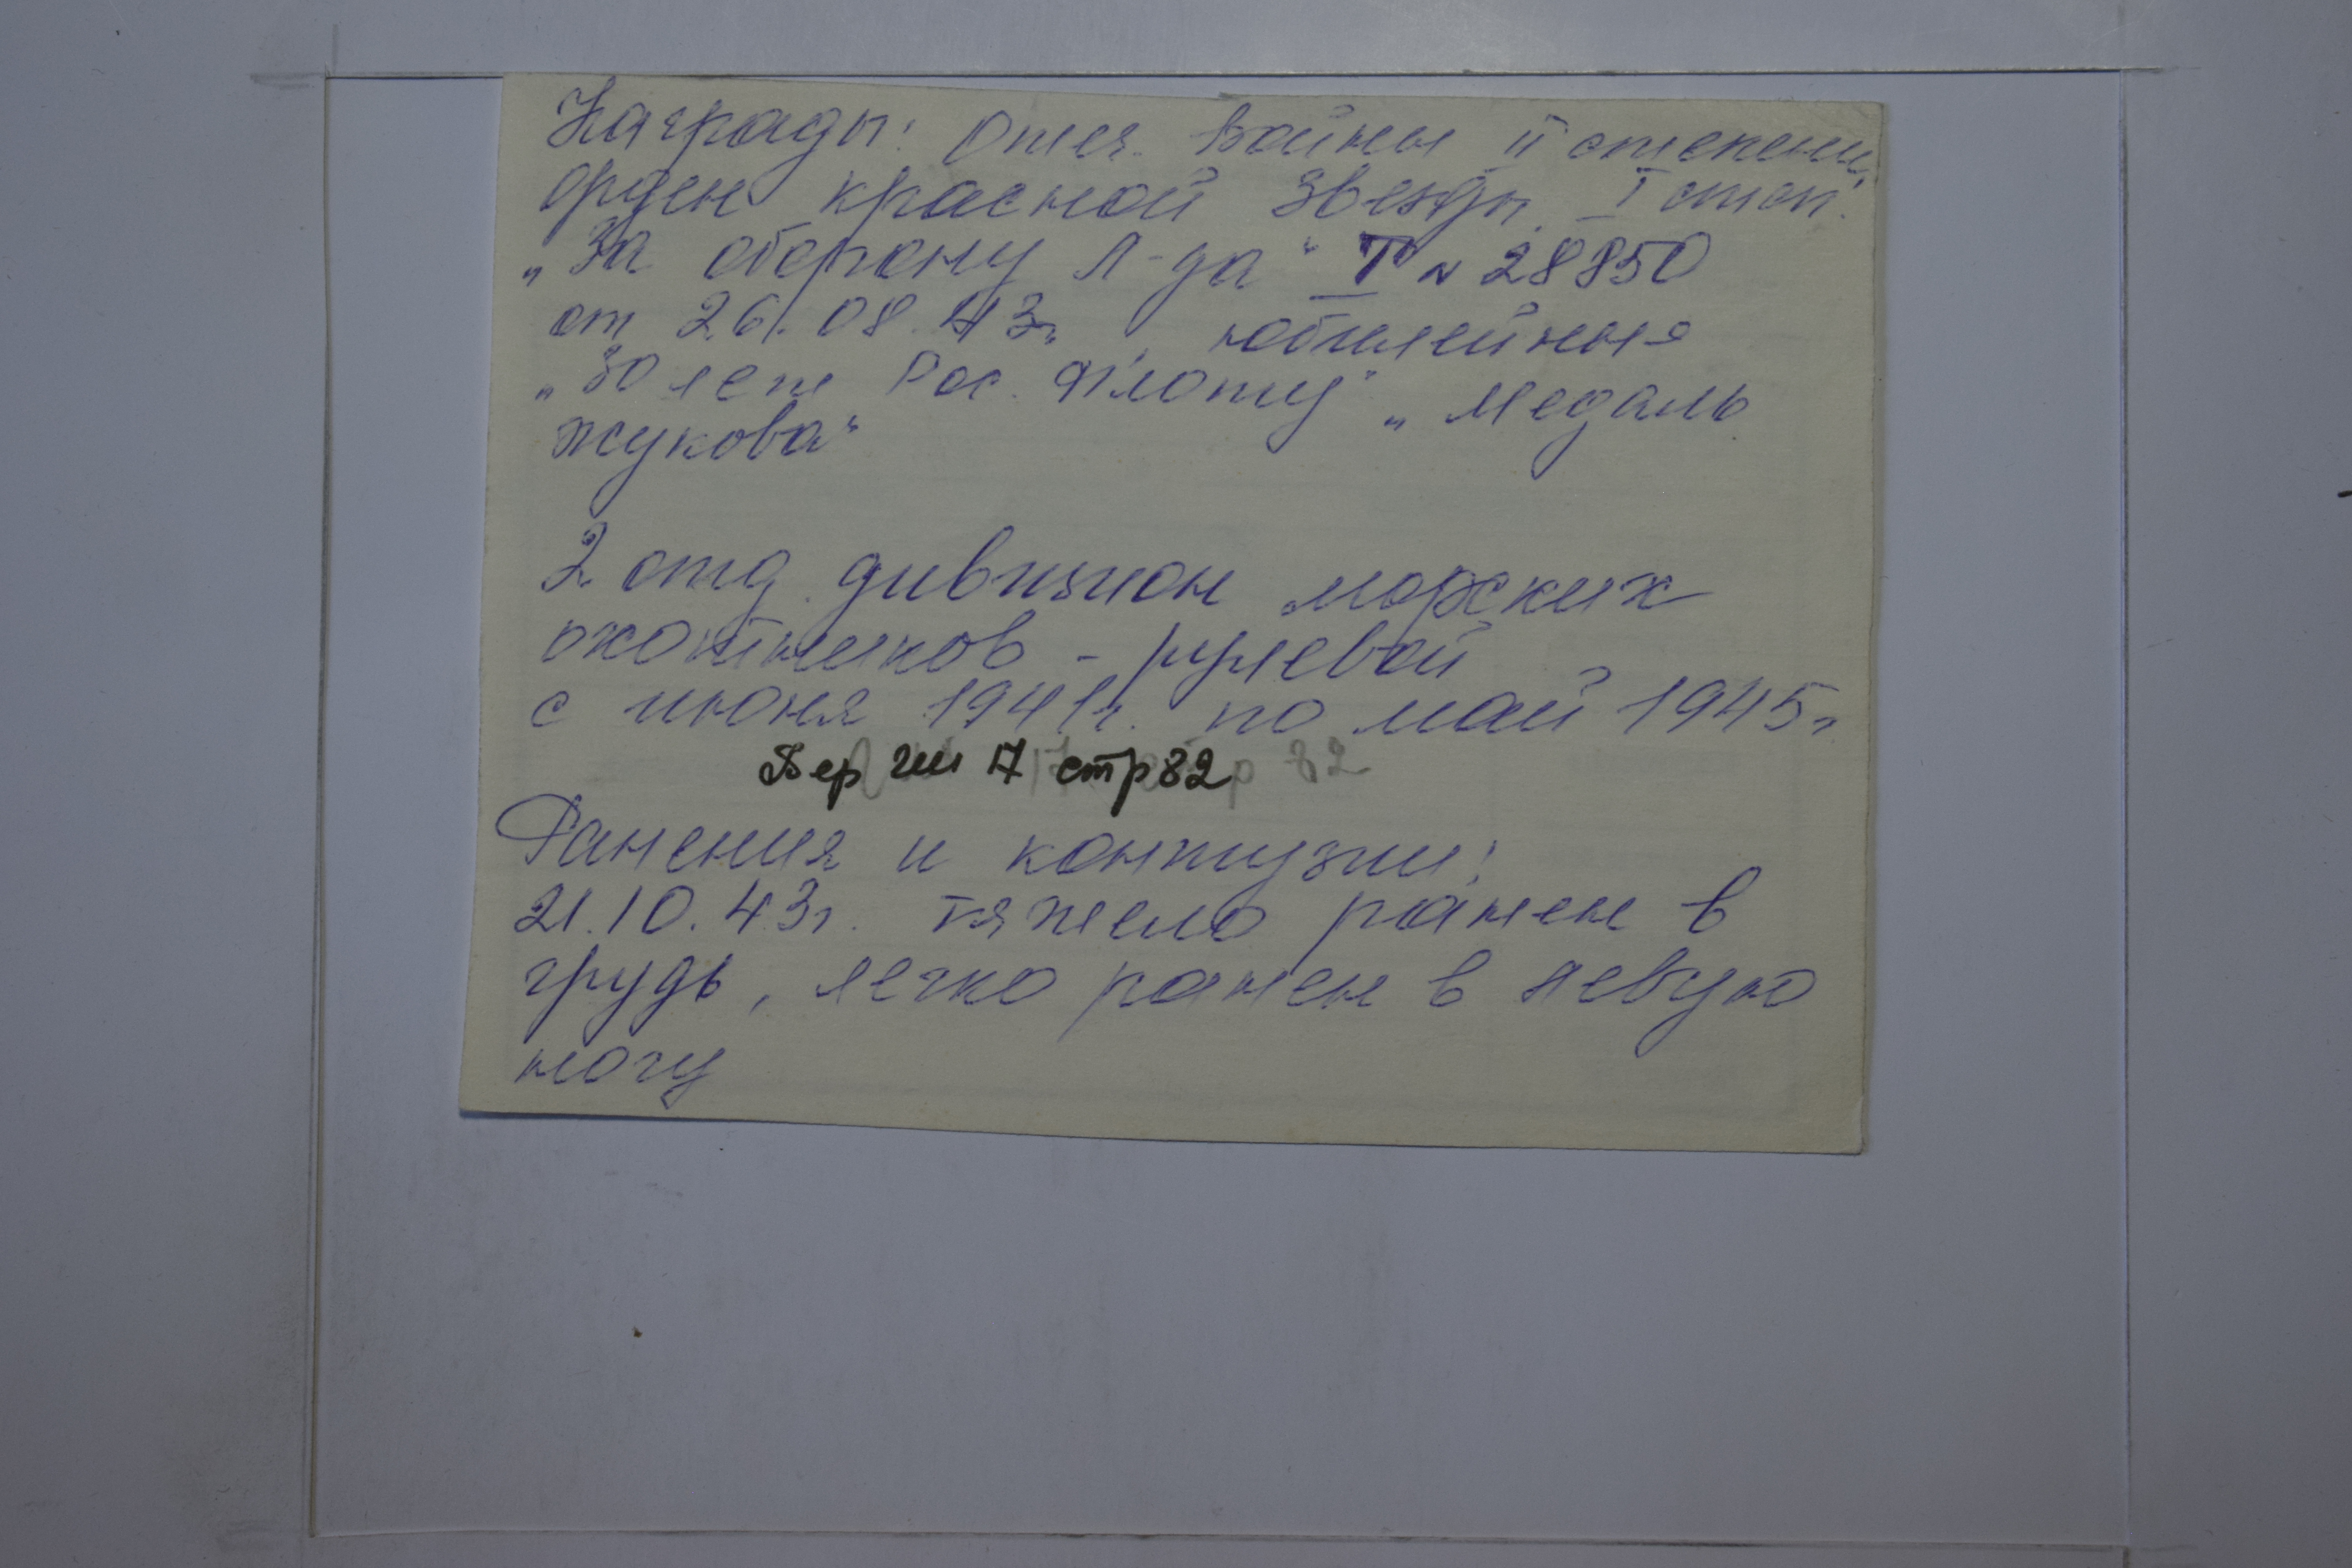 Награды: Отеч. Войны II степени,
орден красной звезды I степ.
„За оборону Л-да" Т № 28850
от 26.08.43г. юбилейные
„30 лет Рос. Флоту" „Медаль
Жукова"
2 отд. дивизион морских
охотников - рулевой
с июня 1941г. по май 1945г
стр 82
17 стр 82
Ранения и контузии:
21.10.43г. тяжело ранен в
грудь, легко ранен в левую
ногу